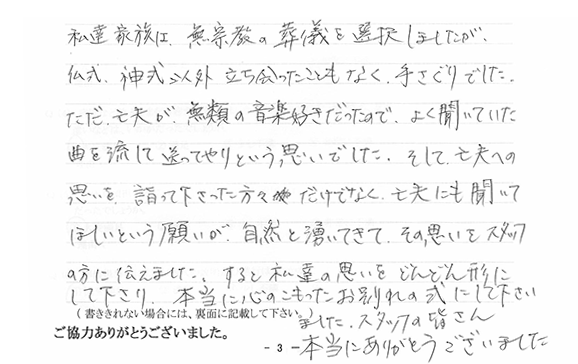 私達家族は、無宗教の葬儀を選択しましたが、
仏式、神式以外立ち会ったこともなく、手さぐりでした。
ただ、亡夫が、無類の音楽好きだったので、よく聞いていた
曲を流して送ってやりという思いでした。そして、亡夫への
思いを、詣って下さった方々だけでなく、亡夫にも聞いて
ほしいという願いが、自然と湧いてきて、その思いをスタッフ
の方に伝えました。すると私達の思いをどんどん形に
して下さり、本当に心のこもったお別れの式にして下さい
（書ききれない場合には、裏面に記載して下さい。）
ました。スタッフの皆さん
ご協力ありがとうございました。
- 3 -
本当にありがとうございました